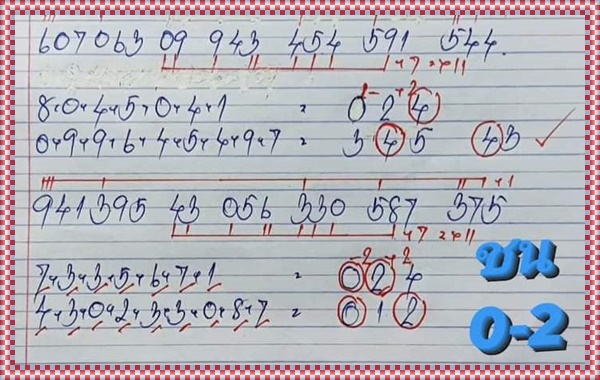 607063 09 943 454 591 544.
+7=×11
1- +2
8+0+4+5+0+4+1 = 0 2 4
0+9+9+6+4+5+4+9+7= 3 4 5 43 ✓
+1
941395 43 056 330 587 375
+7=×11
-2 +2
7+3+3+5+6+7+1 = 0 2 4
4+3+0+2+3+3+0+8+7 = 0 1 2
ชน
0-2